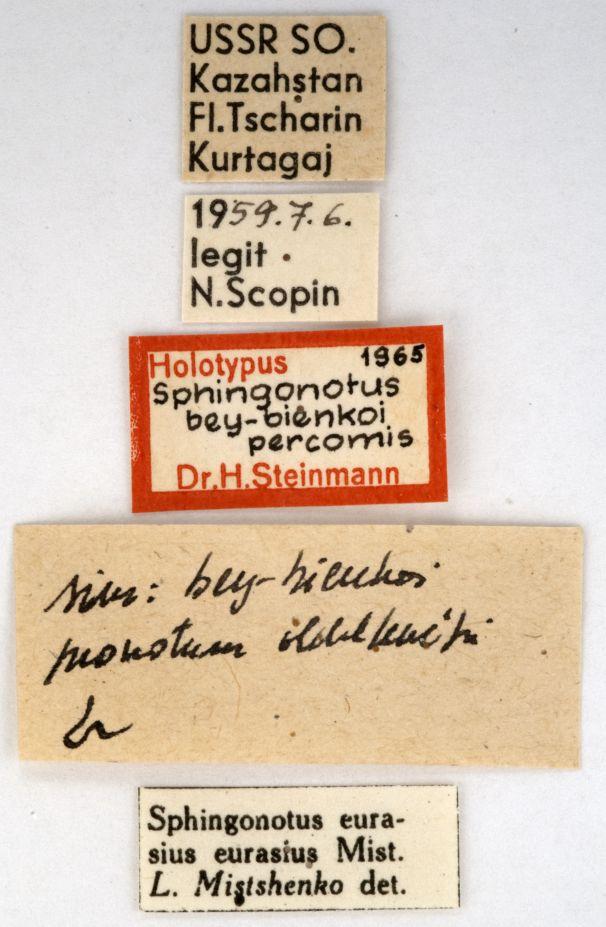 USSR SO.
Kazahstan
Fl.Tscharin
Kurtagaj
1959.7.6.
legit
N.Scopin
Holotypus 1965
Sphingonotus
bey-bienkoi
percomis
Dr.H.Steinmann
bey-bienkoi
pronotum
Sphingonotus eura-
sius eurasius Mist.
L. Mistshenko det.